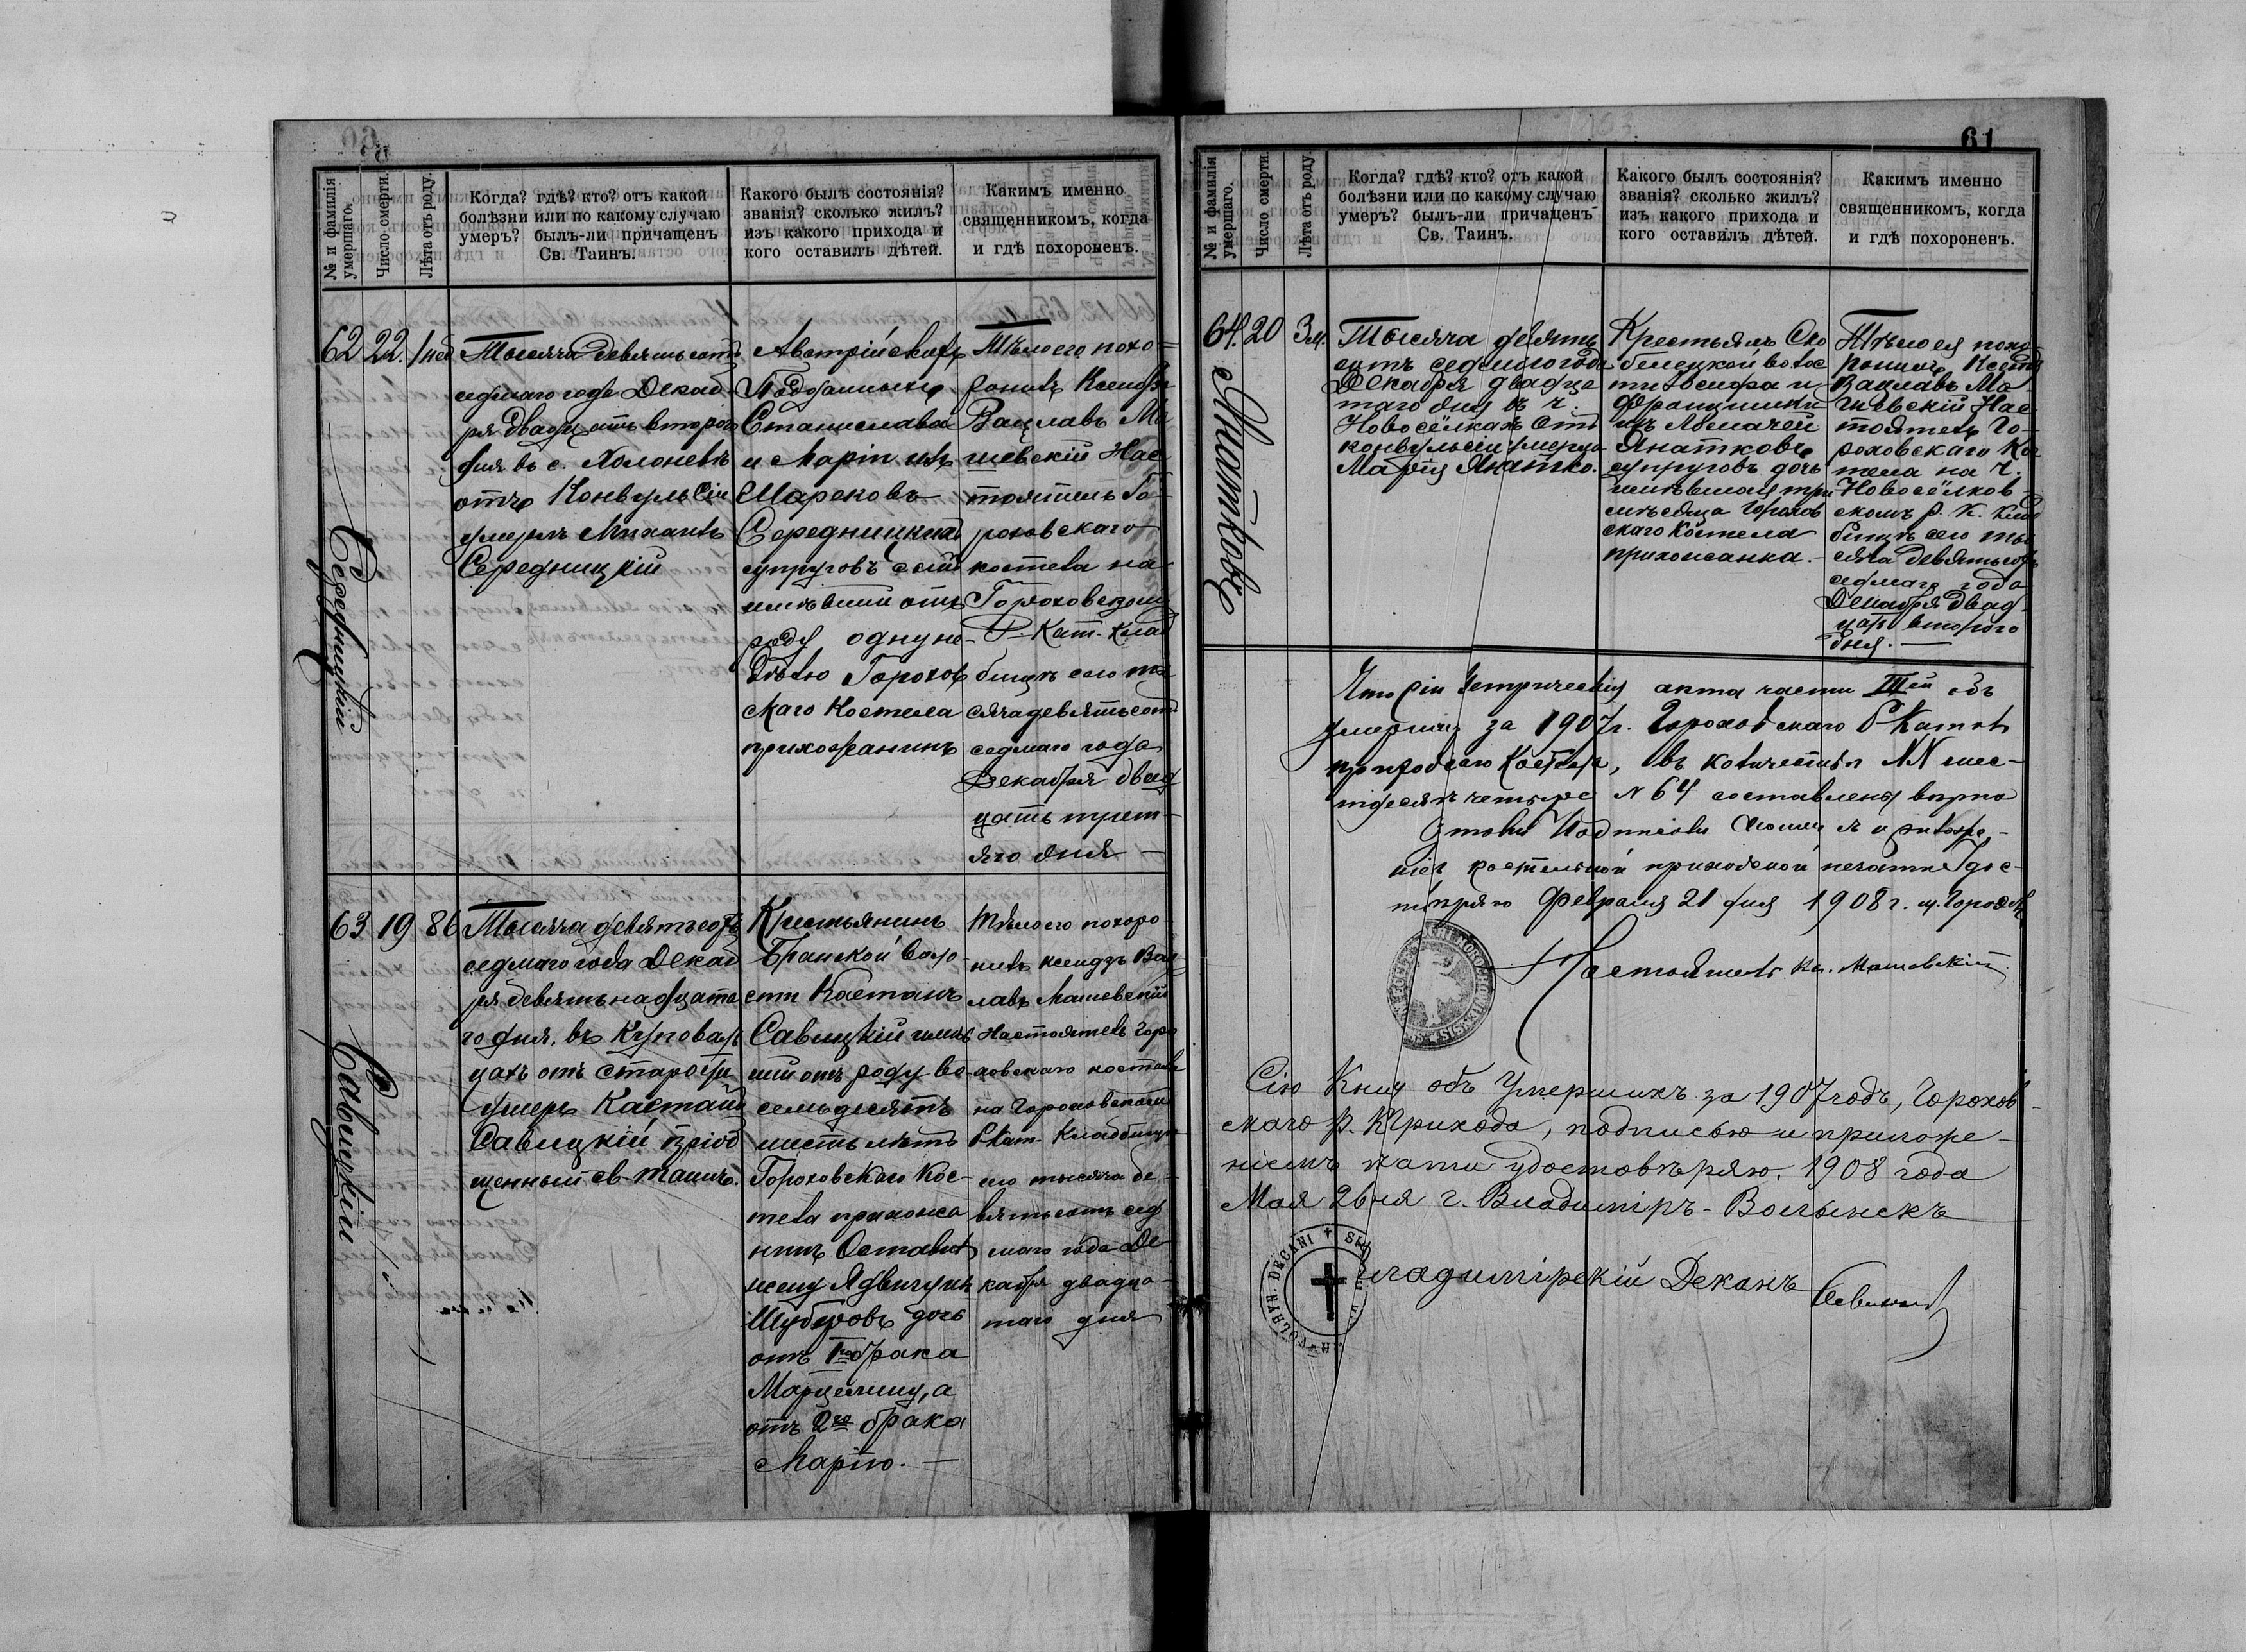 61
№ и фамилія умершаго.
Число смерти.
Лѣта отъ роду.
Когда? гдѣ? кто? отъ какой
болѣзни или по какому случаю
умеръ? былъ-ли причащенъ
Св. Таинъ.
Какого былъ состоянія?
званія? сколько жилъ?
изъ какого прихода и
кого оставилъ дѣтей.
Какимъ именно
священникомъ, когда
и гдѣ похороненъ.
62
Середницкій
22.
1 нед
Тысяча девятьсотъ
седмаго года Декаб
ря двадцать второго
дня въ с. Холоневѣ
отъ Конвульсіи
умеръ Михаилъ
Середницкій
Австрійскихъ
Подданныхъ
Станислава
и Маріи изъ
Шарековъ
Середницкихъ
супруговъ сынъ
имѣвшій отъ
роду одну не-
дѣлю Горохов
скаго Костела
прихожанинъ
Тѣло его похо=
ронилъ Ксендзъ
Вацлавъ Ма
шевскій Нас
тоятель Го-
роховскаго
костела на
Гороховскомъ
Р-Кат-Клад
бищѣ сего ты
сяча девятьсотъ
седмаго года
Декабря двад
цать трет-
яго дня
63
Савицкій
19
86
Тысяча девятьсотъ
седмаго года Декаб
ря девятнадцата
го дня, въ Куповал
цахъ отъ старости
умеръ Каетанъ
Савицкій пріоб
щенный св-таинъ.
Крестьянинъ
Бранской воло-
сти Каетанъ
Савицкій имѣв
шій отъ роду во-
семьдесятъ
шесть лѣтъ
Гороховскаго Кос-
тела прихожа
нинъ Оставилъ
жену Ядвигу изъ
дочь
отъ 1го брака
Марцелину, а
отъ 2го брака
Марію. —
Тѣло его похоро-
нилъ ксендзъ Вац
лавъ Машевскій
Настоятель Горо
ховскаго костела
на Гороховскомъ
Р Кат- Кладбищѣ
сего тысяча де-
вятьсотъ сед
маго года Де
кабря двадца-
таго дня
№ и фамилія умершаго.
Число смерти.
Лѣта отъ роду.
Когда? гдѣ? кто? отъ какой
болѣзни или по какому случаю
умеръ? былъ-ли причащенъ
Св. Таинъ.
Какого былъ состоянія?
званія? сколько жилъ?
изъ какого прихода и
кого оставилъ дѣтей.
Какимъ именно
священникомъ, когда
и гдѣ похороненъ.
64.
Янатковъ
20
3 м.
Тысяча девять
сотъ седмого года
Декабря двадца
таго дня въ ч.
Новосёлкахъ отъ
конвульсіи умерла
Марія Янатко.
Крестьянъ Ско
белецкой волос
ти Іосифа и
Францишки
изъ
Янатковъ
супруговъ дочь
имѣвшая три
мѣсяца Горохов
скаго Костела
прихожанка. —
Тѣло ея похо-
ронилъ Ксендзъ
Вацлавъ Ма
шевскій Нас
тоятель Го-
роховскаго Кос
тела на Ч.
Новосёлков-
скомъ р. К. клад
бищѣ сего ты
сяча девятьсотъ
седмаго года
Декабря двад-
цать второго
дня. —
Что сіи метрическія акта части IIIей объ
умершихъ за 1907г. Гороховскаго Р-Катол
приходскаго Костела, въ количествѣ NN шес-
тдесятъ четыре N 64 составлены вѣрно
въ томъ подписью моею и приложе-
ніем костельной приходской печати удос-
товѣряю Февраля 21 дня 1908 г. м. Гороховъ
Настоятель Кс. Машевскій
Сію Книгу объ Умершихъ за 1907 годъ, Горохов-
скаго р. К Прихода, подписью и приложе-
ніемъ печати удостовѣряю. 1908 года
Мая 26 дня г. Владиміръ-Волынскъ
Владимірскій Деканъ
DECANI